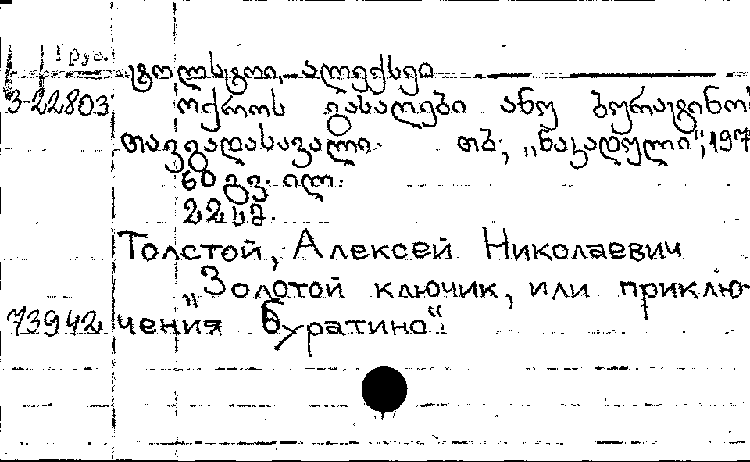 1 руб.
ტოლსტოი, ალექსეი
3-22.803
ოქროს გასაღები ანუ ბურატინოს
თავგადასავალი. თბ., „ნაკადული“, 197
60 გვ. ილ.
22 სმ.
Толстой, Алексей Николаевич
„Золотой ключик, или приклю-
73942 чения Буратино“.